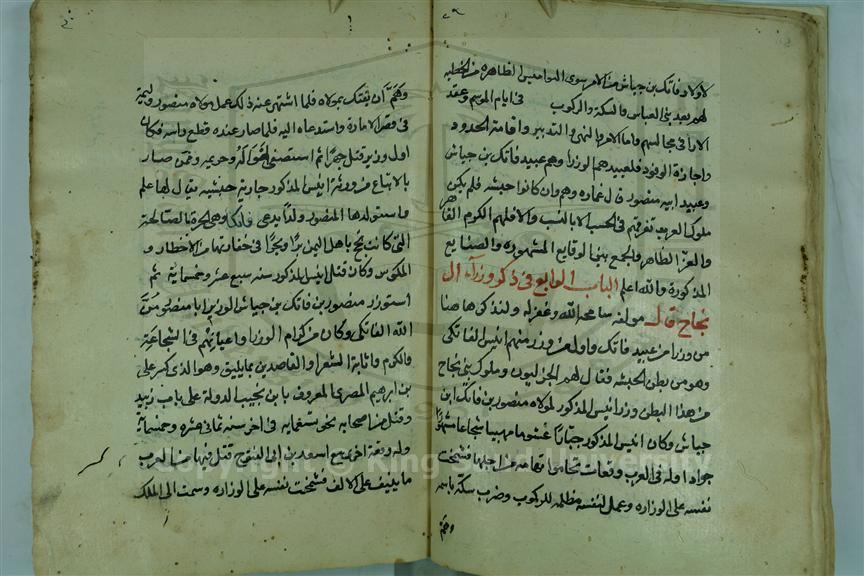 لاولاد فاتك بن جياش من الامر سوى النواميس الظاهره من الخطبه
لهم بعد بنى العباس والسكة والركوب فى ايام الموسم وعقد
الارا فى مجالسهم واما الامر والنهى والتدبير واقامة الحدود
واجازة الوفود فلعبيدهم الوزرا وهم عبيد فاتك بن جياش
وعبيد ابيه منصور قال عماره وهم وان كانوا حبشه فلم يكن
ملوك العرب تفوقهم فى الحسب الا بالنسب والا فلهم الكرم
والعز الظاهر والجمع بين الوقايع المشهوره والصنايع
المذكورة والله اعلم الباب الرابع فى ذكر وزرآء ال
نجاح قال مولفه سامحه الله وغفر له ولنذكر هاهنا
من وزرا من عبيد فاتك واول من وزر منهم انيس الفاتكى
وهو من بطن الحبشه يقال لهم الجزليون وملوك بنى نجاح
من هذا البطن وزر انيس المذكور لمولاه منصور بن فاتك ابن
جياش وكان انيس المذكور جبارًا غشوما مهيبا شجاعا مشهورًا
جوادا وله فى العرب وقعات تحاموا تهامه من اجلها فشمخت
نفسه على الوزاره وعمل لنفسه مظله للركوب وضرب سكة باسمه
وهم
وهَمَّ أن يفتك بمولاه فلما اشتهر عنه ذلك عمل مولاه منصور وليمة
فى قصر الامارة واستدعاه اليه فلما صار عنده قطع راسه فكان
اول وزير قتل جهرًا ثم استصفى امواله وحريمه فممن صار
بالابتاع من ورثة انيس المذكور جارية حبشيه يقال لها علم
واستولدها المنصور ولدًا يدعى فاتكا وهى الحرة الصالحة
التى كانت تحج باهل اليمن برًا وبحرًا فى خفارتها من الاخطار و
المكوس وكان قتل انيس المذكور سنه سبع عشر وخمسماية ثم
استوزر منصور بن فاتك بن جياش الوزير ابا منصور منّ
الله الفاتكى وكان من كرام الوزرا واعيانهم فى الشجاعة
والكرم واثابة الشعرا والقاصدين بما يليق وهو الذى كسر على
بن ابرهيم المصرى المعروف بابن نجيب الدولة على باب زبيد
وقتل من اصحابه نحو تسعمايه فى اخر سنه ثمانى عشره وخمسماة
وله وقعة اخرى مع اسعد بن ابى الفتوح قتل فيها من العرب
ما ينيف على الالف فشمخت نفسه على الوزاره وسمت الى الملك
Copyright © King Saud University